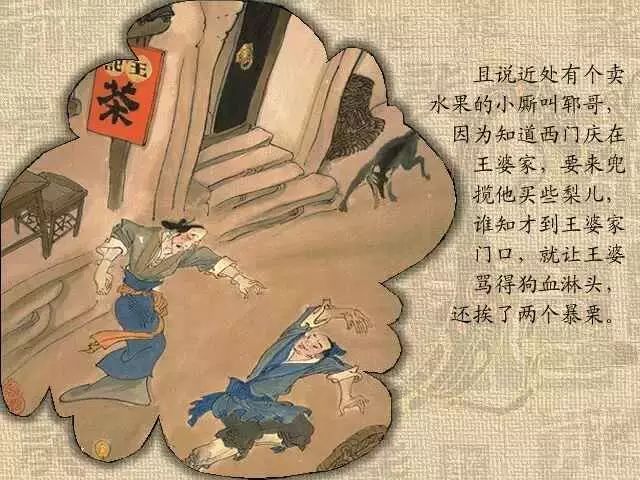 王
茶
且说近处有个卖
水果的小厮叫郓哥，
因为知道西门庆在
王婆家，要来兜
揽他买些梨儿，
谁知才到王婆家
门口，就让王婆
骂得狗血淋头，
还挨了两个暴栗。